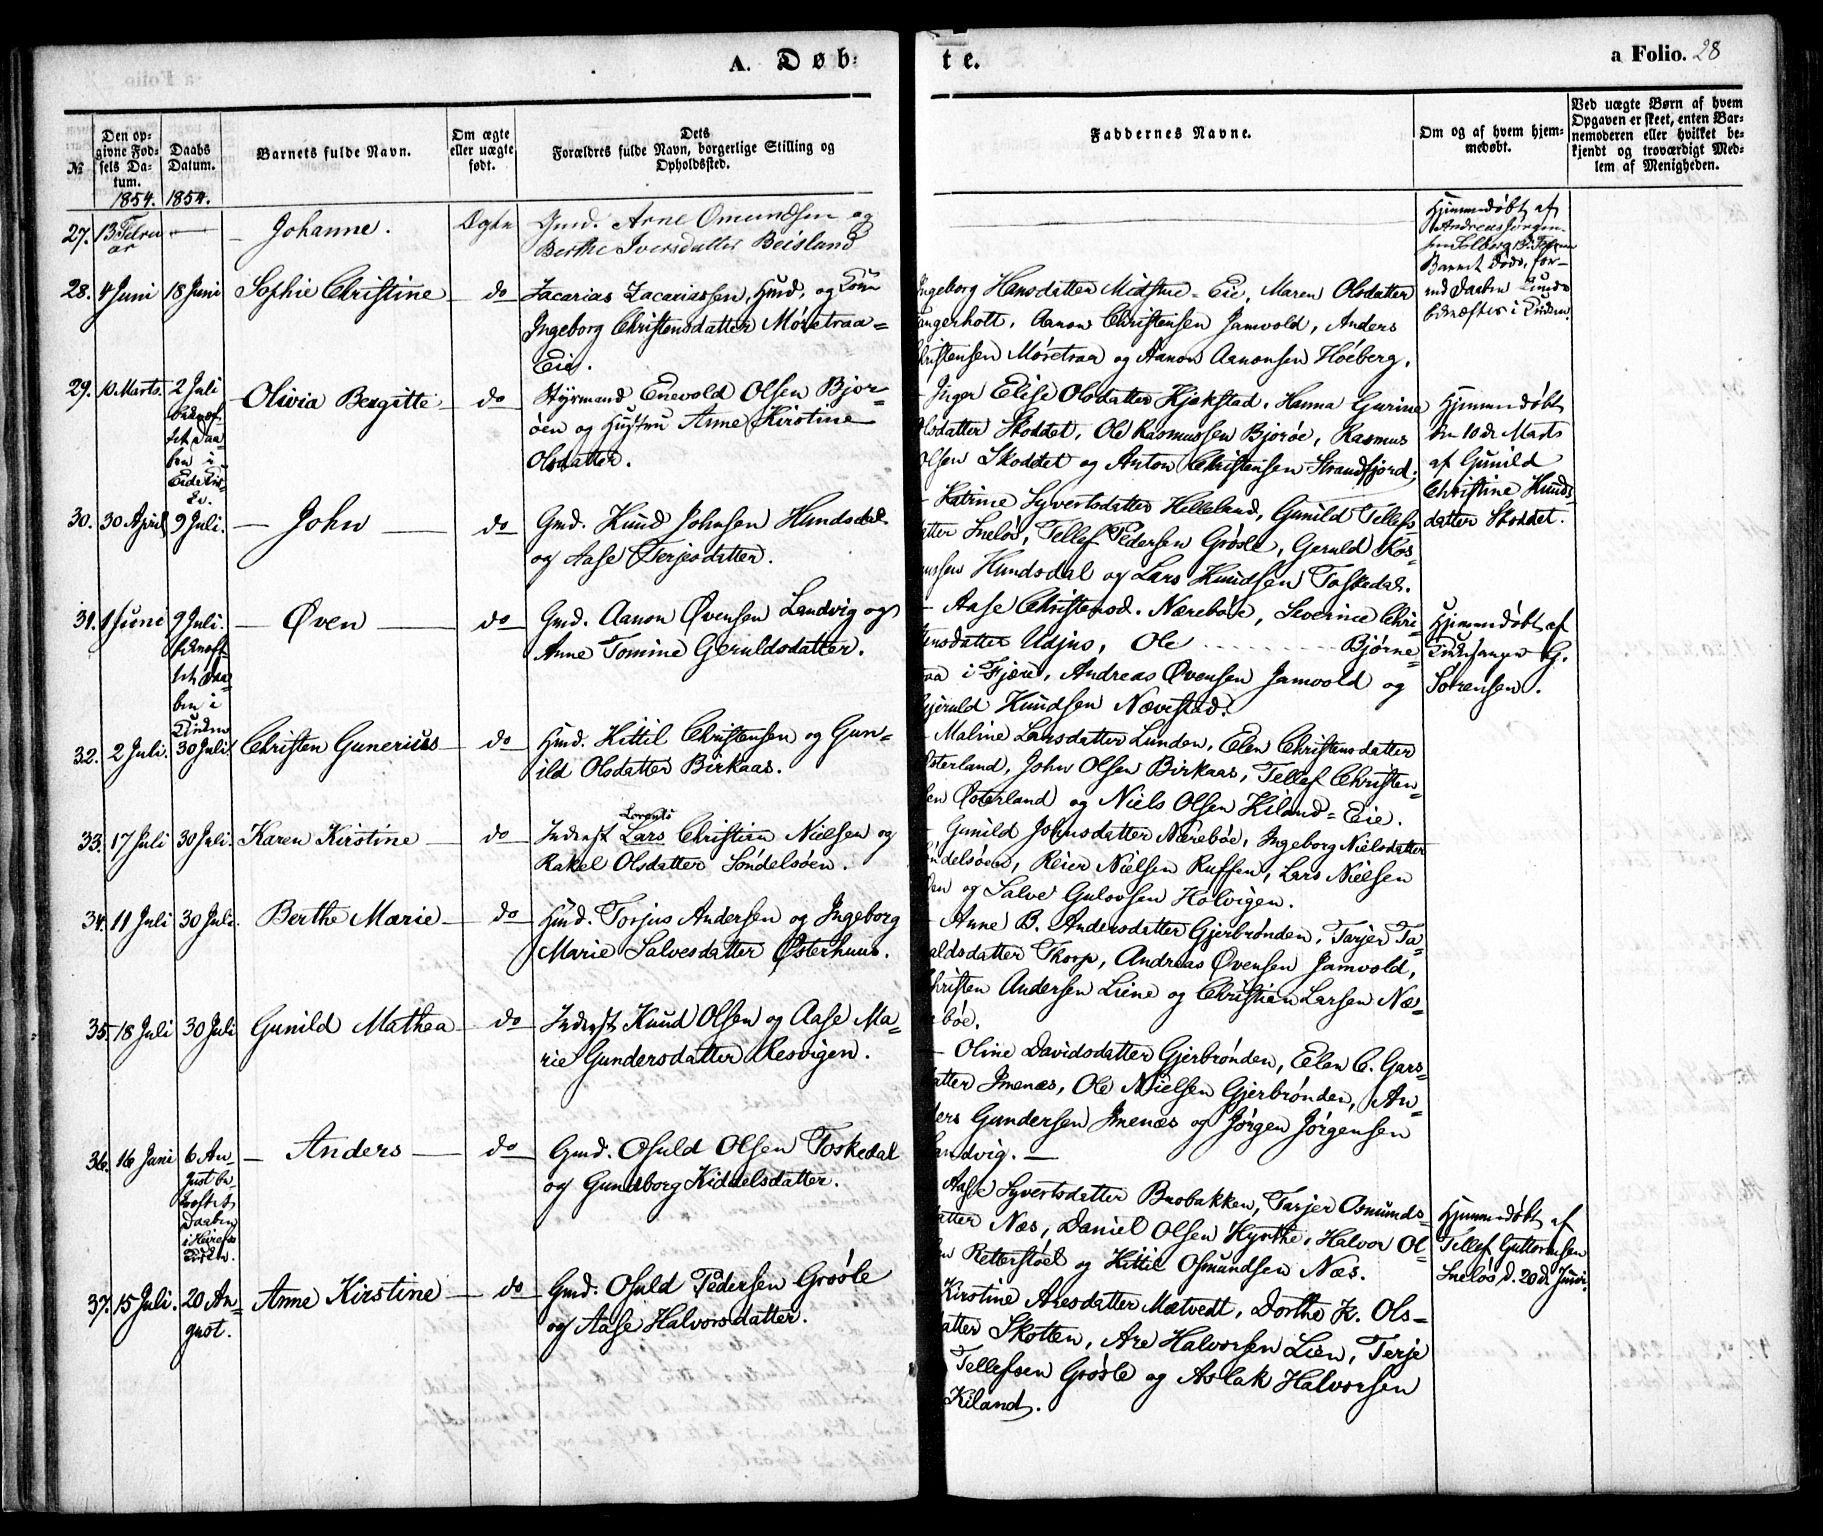 A. Døb-
te.
a Folio. 28
№
Den op-
givne Fød-
sels Da-
tum.
1854.
Daabs
Datum.
1854.
Barnets fulde Navn.
Om ægte
eller uægte
født.
Dets
Forældres fulde Navn, borgerlige Stilling og
Opholdssted.
Faddernes Navne.
Om og af hvem hjem-
medøbt.
Ved uægte Børn af hvem
Opgaven er skeet, enten Bar-
nemoderen eller hvilket be-
kjendt og troværdigt Med-
lem af Menigheden.
27. 13 Febru
ar
Johanne.
Ægte
Gmd. Arne Omundsen og
Berthe Iversdatter Beisland
Hjemmedøbt af
Andreas Jørgen-
Barnet døde, for-
ind Daaben kunde
bekræftes i Kirken.
28. 4 Juni 18 Juni
Sophie Christine
do
Zacarias Zacariassen, Hmd. og Kone
Ingeborg Christensdatter Møretraa=
Eie.
Ingeborg Hansdatter Midstue-Eie, Maren Olsdatter
angerholt, Aanon Christensen Jamvold, Anders
Christensen Møretraa og Aanon Aanonsen Høeberg.
29. 10 Marts. 2 Juli
bekræf-
tet Daa
ben i
Eide Kir-
ke.
Olivia Bergitte
do
Styrmand Enevold Olsen Bjor-
øen og Hustru Anne Kirstine
Olsdatter.
Inger Elise Olsdatter Kjekstad, Hanna Gurine
Olsdatter Skoddet, Ole Rasmussen Bjorøe, Rasmus
Olsen Skoddet og Anton Christensen Strandfjord,
Hjemmedøbt
den 10de Marts
af Gunild
Christine Knuds
datter Skoddet.
30. 30 April 9 Juli.
John
do
Gmd. Knud Johnsen Hundsdal
og Aase Terjesdatter.
Katrine Syvertsdatter Helleland, Gunild Tellefs
atter Sneløs, Tellef Pedersen Grøsle, Geruld Ros-
mussen Hundsdal og Lars Knudsen Toskedal.
31. 1 Juni 9 Juli.
bekræft-
tet Daa-
ben i
Kirken
Øven
do
Gmd. Aanon Øvensen Landvig og
Anne Tomine Geruldsdatter.
Aase Christensd. Nærebøe, Severine Chri-
tensdatter Udjus, Ole Bjørne-
raa i Fjære, Andreas Øvensen Jamvold og
Gjeruld Knudsen Nævestad.
Hjemmedøbt af
Kirkesanger G.
Sørensen.
32. 2 Juli. 30 Juli.
Christen Gunerius
do
Hmd. Kittil Christensen og Gun-
ild Olsdatter Birkaas.
Maline Larsdatter Lunden, Elen Christensdatter
Østerland, John Olsen Birkaas, Tellef Christen-
sen Østerland og Niels Olsen Kiland-Eie.
33. 17 Juli 30 Juli.
Karen Kirstine
do
Lorents
Inderst Lars Christian Nielsen og
Rakel Olsdatter Søndelsøen.
Gunild Johnsdatter Nærebøe, Ingeborg Nielsdatter
ndelsøen, Reier Nielsen Ruffen, Lars Nielsen
den og Salve Gulovsen Holvigen.
34. 11 Juli 30 Juli.
Berthe Marie
do
Hmd. Torjus Andersen og Ingeborg
Marie Salvesdatter Østerhuus.
Anne B. Andersdatter Gjerbrønden, Tarjer Ta-
aldsdatter Thorp, Andreas Øvensen Jamvold,
Christen Andersen Liene og Christian Larsen Næ-
bøe.
35. 18 Juli 30 Juli
Gunild Mathea
do
Inderst Knud Olsen og Aase Ma-
rie Gundersdatter Resvigen.
Oline Davidsdatter Gjerbrønden, Elen C. Gars-
atter Imenæs, Ole Nielsen Gjerbrønden, An-
ders Gundersen Imenæs og Jørgen Jørgensen
Landvig.
36. 16 Juni 6 Au-
gust be
kræftet
Daaben
i Heirefos
Kirken.
Anders
do
Gmd. Osuld Olsen Toskedal
og Gundborg Kiddelsdatter.
Aase Syvertsdatter Buobakken, Tarjer Osmunds-
datter Næs, Daniel Olsen Hyrthe, Halvor Ol-
sen Retterstøel og Kittil Osmundsen Næs.
Hjemmedøbt af
Tellef Guttormsen
Sneløs d. 20de Juni.
37. 15 Juli. 20 Au-
gust.
Anne Kirstine
do
Gmd. Osuld Pedersen Grøsle
og Aase Halvorsdatter.
Kirstine Aresdatter Mætvedt, Dorthe K. Ols-
datter Skotten, Are Halvorsen Lien, Terje
Tellefsen Grøsle og Aslak Halvorsen
Kiland.